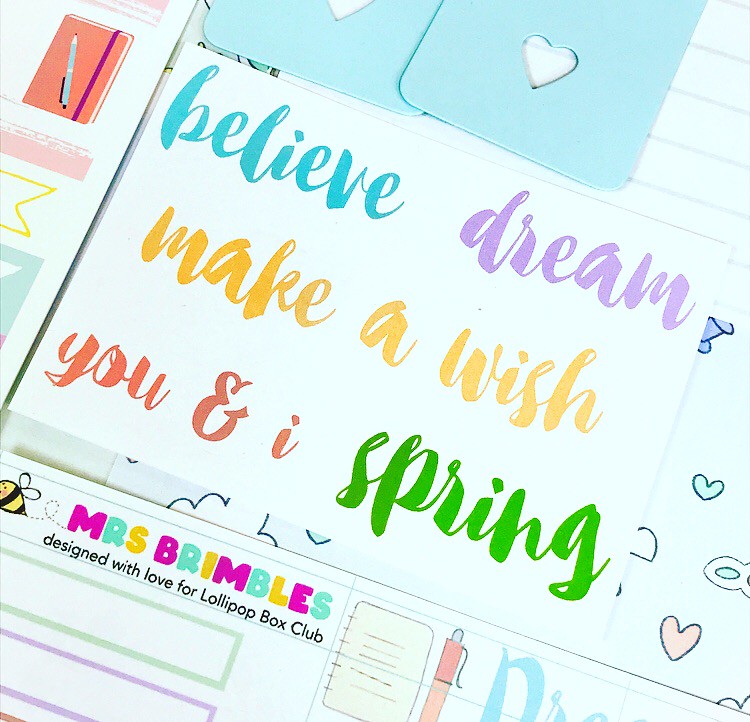 believe dream
make a wish
you & i spring
MRS BRIMBLES
designed with love for Lollipop Box Club